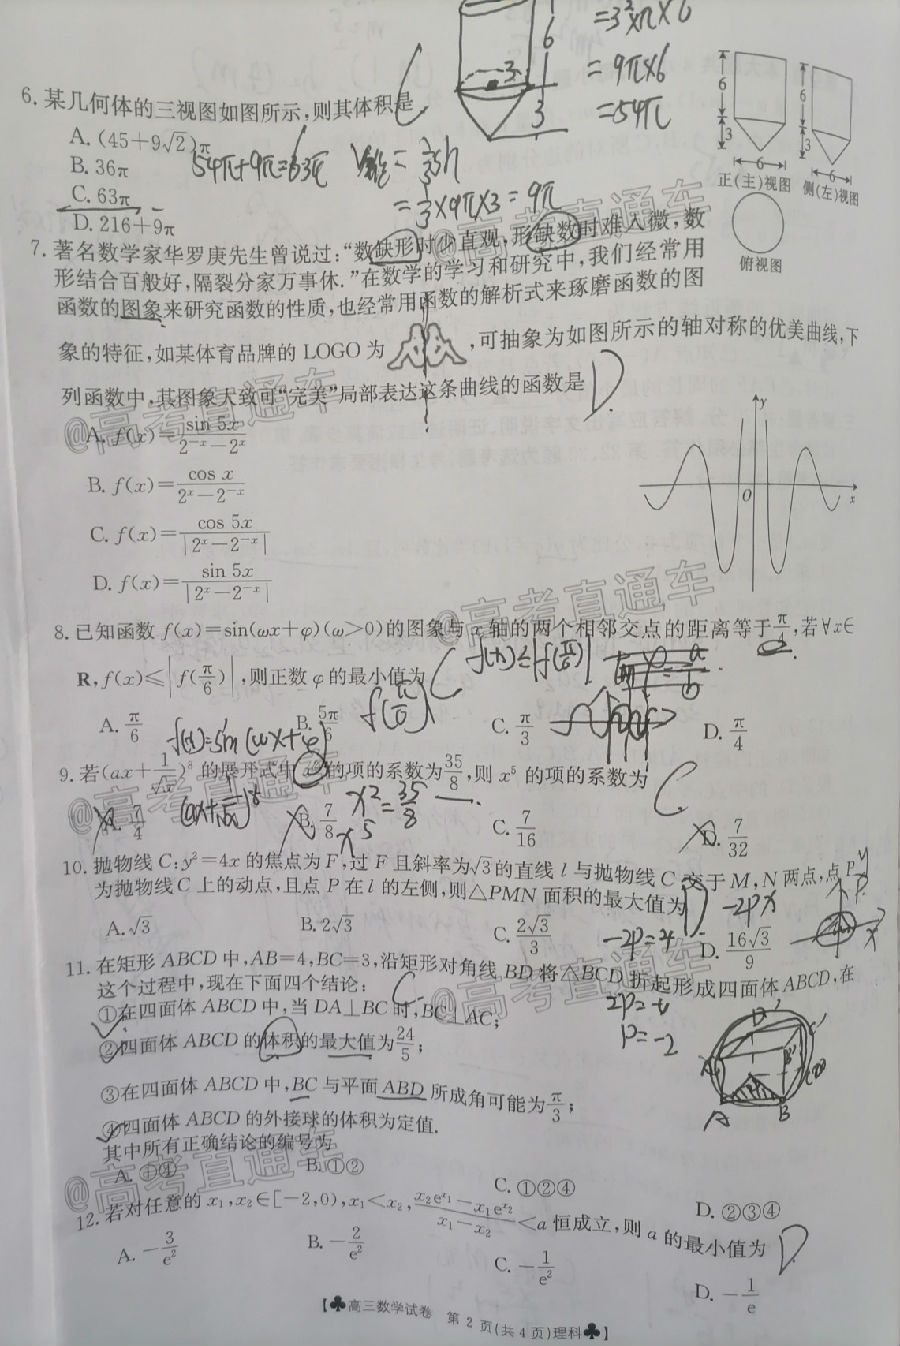 =3²×π×6
=9π×6
=54π
6
3
3
6.某几何体的三视图如图所示,则其体积是
C
A. (45+9√2)π
B. 36π
54π+9π=63π
V锥=1/3Sh
C. 63π
=1/3×9π×3=9π
D. 216+9π
6
3
6
6
3
6
正(主)视图
侧(左)视图
俯视图
7.著名数学家华罗庚先生曾说过:“数缺形时少直观,形缺数时难入微,数
形结合百般好,隔裂分家万事休.”在数学的学习和研究中,我们经常用
函数的图象来研究函数的性质,也经常用函数的解析式来琢磨函数的图
象的特征,如某体育品牌的LOGO为 ,可抽象为如图所示的轴对称的优美曲线,下
列函数中,其图象大致可“完美”局部表达这条曲线的函数是
D
A. f(x)=sin 5x/(2⁻ˣ-2ˣ)
B. f(x)=cos x/(2ˣ-2⁻ˣ)
C. f(x)=cos 5x/|2ˣ-2⁻ˣ|
D. f(x)=sin 5x/|2ˣ-2⁻ˣ|
y
O
x
8.已知函数 f(x)=sin(ωx+φ)(ω>0)的图象与 x 轴的两个相邻交点的距离等于π/4,若∀x∈
R,f(x)≤|f(π/6)|,则正数 φ 的最小值为
C
f(x)≤|f(π/6)|
A. π/6
B. 5π/6
C. π/3
D. π/4
f(x)=sin(ωx+φ)
f(π/6)
9.若(ax+1/√x)⁸的展开式中x²的项的系数为35/8,则 x⁵ 的项的系数为
C
A. 7/4
B. 7/8
x²=35/8
x⁵
C. 7/16
D. 7/32
10.抛物线C:y²=4x的焦点为F,过F且斜率为√3的直线l与抛物线C交于M,N两点,点P
为抛物线C上的动点,且点P在l的左侧,则△PMN面积的最大值为
D
A.√3
B.2√3
C. 2√3/3
D. 16√3/9
-2px
-2p=4
2p=-4
p=-2
11.在矩形ABCD中,AB=4,BC=3,沿矩形对角线BD将△BCD折起形成四面体ABCD,在
这个过程中,现在下面四个结论:
C
①在四面体ABCD中,当DA⊥BC时,BC⊥AC;
②四面体ABCD的体积的最大值为24/5;
③在四面体ABCD中,BC与平面ABD所成角可能为π/3;
④四面体ABCD的外接球的体积为定值.
其中所有正确结论的编号为
A. ①④
B. ①②
C. ①②④
D. ②③④
A
B
12.若对任意的 x₁,x₂∈[-2,0),x₁<x₂,(x₂eˣ¹-x₁eˣ²)/(x₁-x₂)<a恒成立,则a的最小值为
D
A. -3/e²
B. -2/e²
C. -1/e²
D. -1/e
【♣高三数学试卷 第2页(共4页)理科♣】
@高考直通车
@高考直通车
@高考直通车
@高考直通车
@高考直通车
@高考直通车
@高考直通车